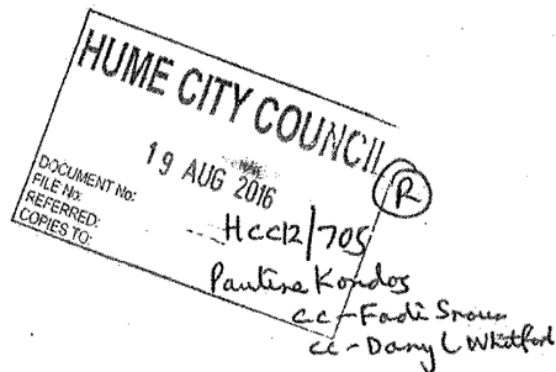 HUME CITY COUNCIL
19 AUG 2016
R
DOCUMENT No:
FILE No: HCC12/705
REFERRED: Pauline Kondos
COPIES TO: cc-Fadi
cc-Daryl Whitford